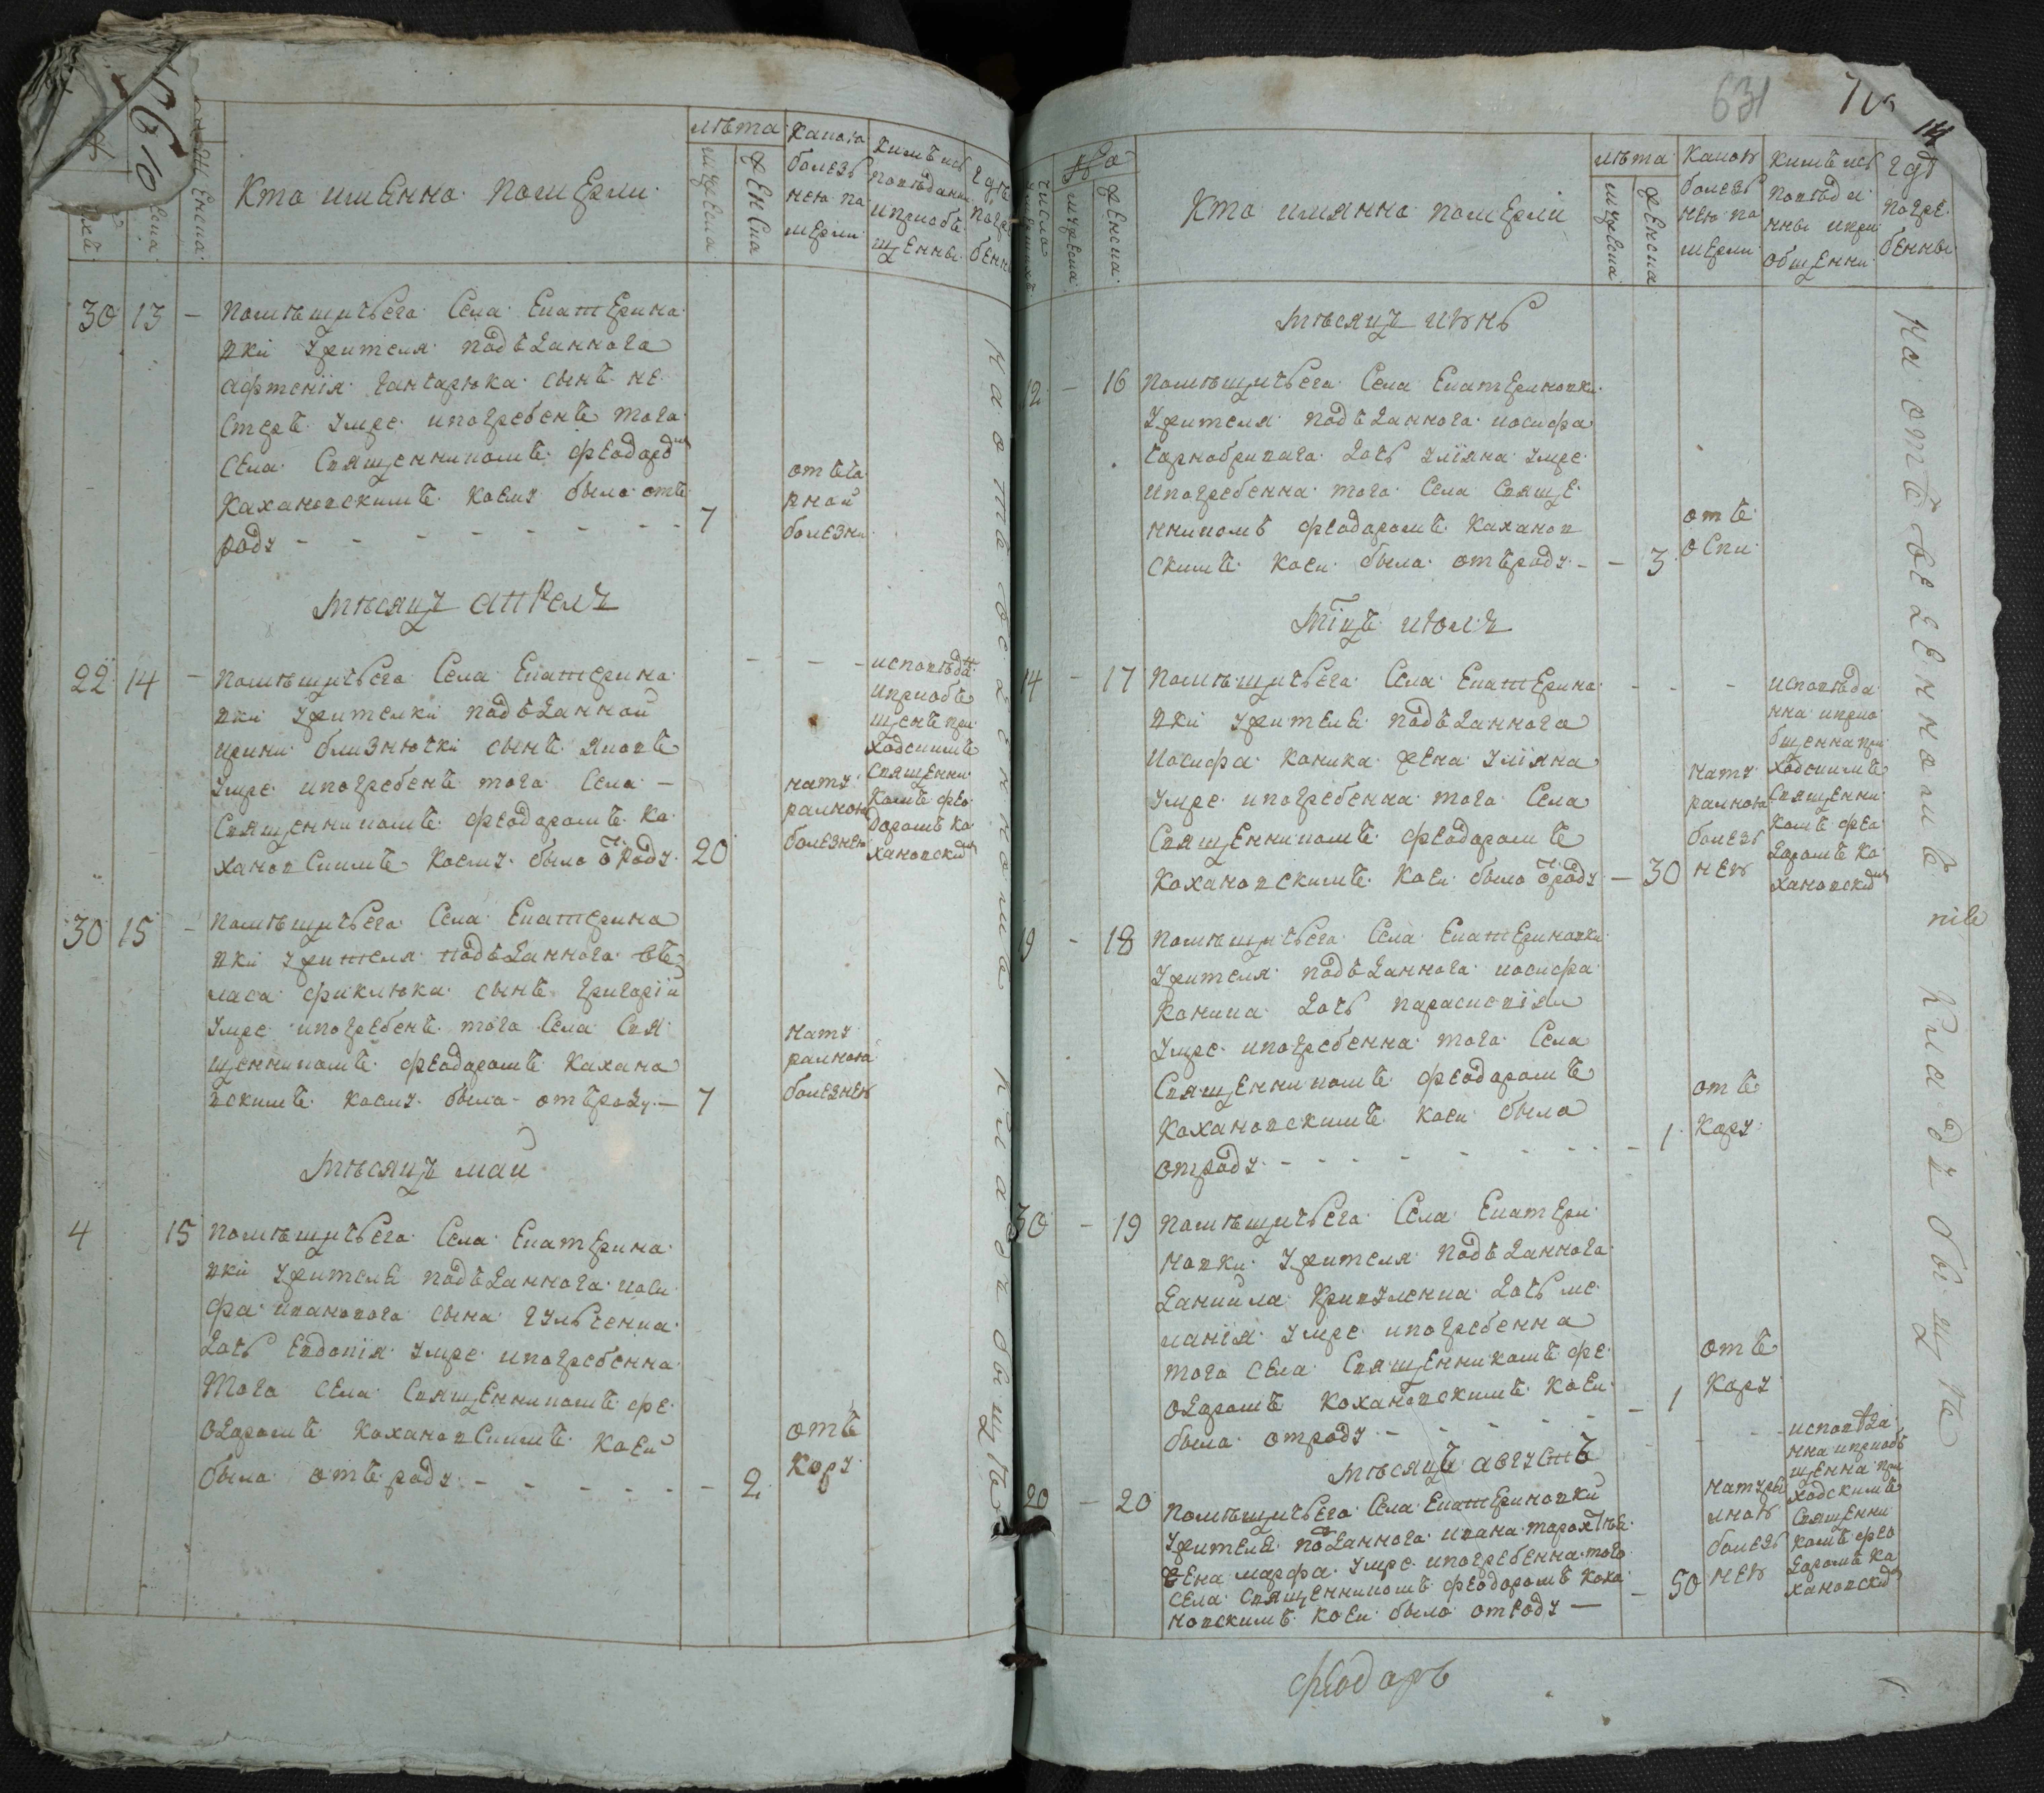 Кто имЕнно помЕрли
лѣта
мужЕска
жЕнска
Какою
болезь
нею по
мерли
Кимъ ись
повѣданн
ипріобъ
щЕнны
гдѣ
погре
бенн
30 13 – помѣщичьего Села Екатерино
вки жителя подъданного
Сынъ не
стеръ умре ипогребенъ того
села Священникомъ феодором
Кохановскимъ коему было отъ
роду – – – – – – – 7
болезни
мѣсяцъ апрелъ
22 14 – помѣщичьего Села Екатерино
вки жителки подъданной
ирини близнючки сынъ яковъ
умре ипогребенъ того Села –
Священникомъ феодоромъ Ко
хановскимъ коему было ѿ роду 20
нату
ралною
болезнею
исповѣда
ипріобъ
щенъ при
ходскимъ
Священни
комъ фео
доромъ Ко
хановским
30 15 – помѣщичьего Села Екатерино
вки жителя подъданного
ласа фиклюка сынъ григорій
умре ипогребенъ того Села Свя
щенникомъ феодоромъ Кохано
вскимъ коему было отъроду – 7
нату
ралною
болезнею
мѣсяцъ май
4 15 помѣщичьего Села Екатерино
вки жителЕ подъданного иоси
фа иванового сына гульченка
дочь Евдокія умре ипогребенна
того села Священникомъ фе
одоромъ Кохановскимъ коей
было отъ роду – – – – – – 2
отъ
Кору
на отъведенномъ кладъбыщъ
631
Число
мужЕска
жЕнска
Кто имянно помЕрли
лѣта
мужЕска
жЕнска
Какою
болезь
нею по
мерли
Кимъ ись
повѣда
нны ипри
общЕнни
гдѣ
погре
бЕнны
мѣсяцъ июнь
12 – 16 помѣщичьего Села Екатериновки
жителя подъданного иосифа
чорнобривого дочь уліяна умре
ипогребенна того Села Свяще
нникомъ феодоромъ Коханов
скимъ коей было отъроду – – 3
отъ
оспи
мцъ июлъ
14 – 17 помѣщичьего Села Екатерино
вки жителЕ подъданного
Иосифа Коника жена уліяна
умре ипогребенна того Села
Священникомъ феодоромъ
Кохановскимъ коей было ѿроду – 30
нату
ралною
болезь
нею
исповѣда
нна ипріо
бщенна при
ходскимъ
Священни
комъ фео
доромъ Ко
хановским
19 – 18 помѣщичьего Села Екатериновки
жителя подъданного иосифа
Коника дочь параскевія
умре ипогребенна того Села
Священникомъ феодоромъ
Кохановскимъ коей было
отроду – – – – – – – 1
отъ
Кору
30 – 19 помѣщичьего Села Екатери
новки жителя подъданного
Даниила Кривуленка дочь ме
ланія умре ипогребенна
того села Священникомъ фе
одоромъ Кохановскимъ коей
было отроду – – – – – 1
отъ
Кору
мѣсяцъ августъ
20 – 20 помѣщичьего Села Екатериновки
жителЕ подданного ивана
жЕна марфа умре ипогребенна того
села Священникомъ феодоромъ Кохо
новскимъ коей было отроду – – 50
болезь
нею
исповѣда
нна ипріобъ
щЕнна при
ходскимъ
Священни
комъ фео
доромъ Ко
хановским
на отъведенномъ кладъбыщъ
феодоръ